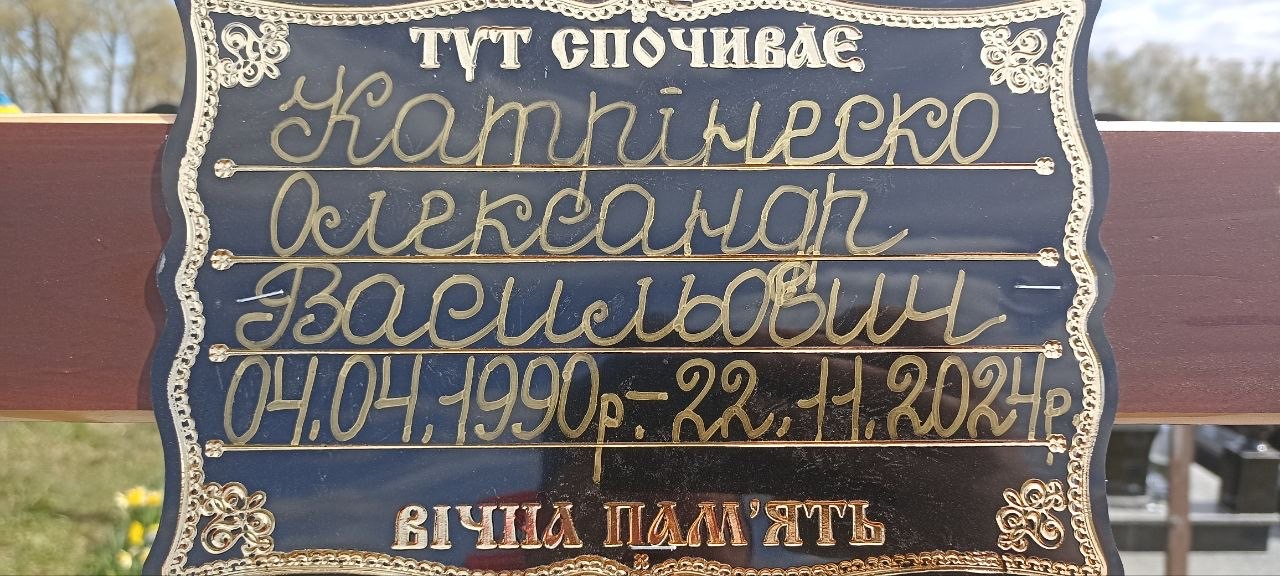 ТУТ СПОЧИВАЄ
Катрінеско
Олександр
Васильович
04.04.1990р.-22.11.2024р.
ВІЧНА ПАМ'ЯТЬ